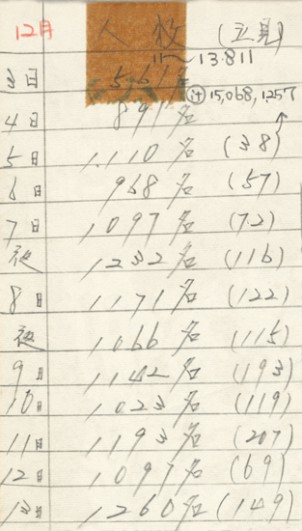 12月 人数 (立見)
11〜13.811
3日 561名
㊉ 15,068,1257
4日 891名
5日 1,110名 (38)
6日 968名 (57)
7日 1097名 (72)
夜 1232名 (116)
8日 1171名 (122)
夜 1066名 (115)
9日 1142名 (193)
10日 1023名 (119)
11日 1193名 (207)
12日 1097名 (69)
13日 1260名 (149)